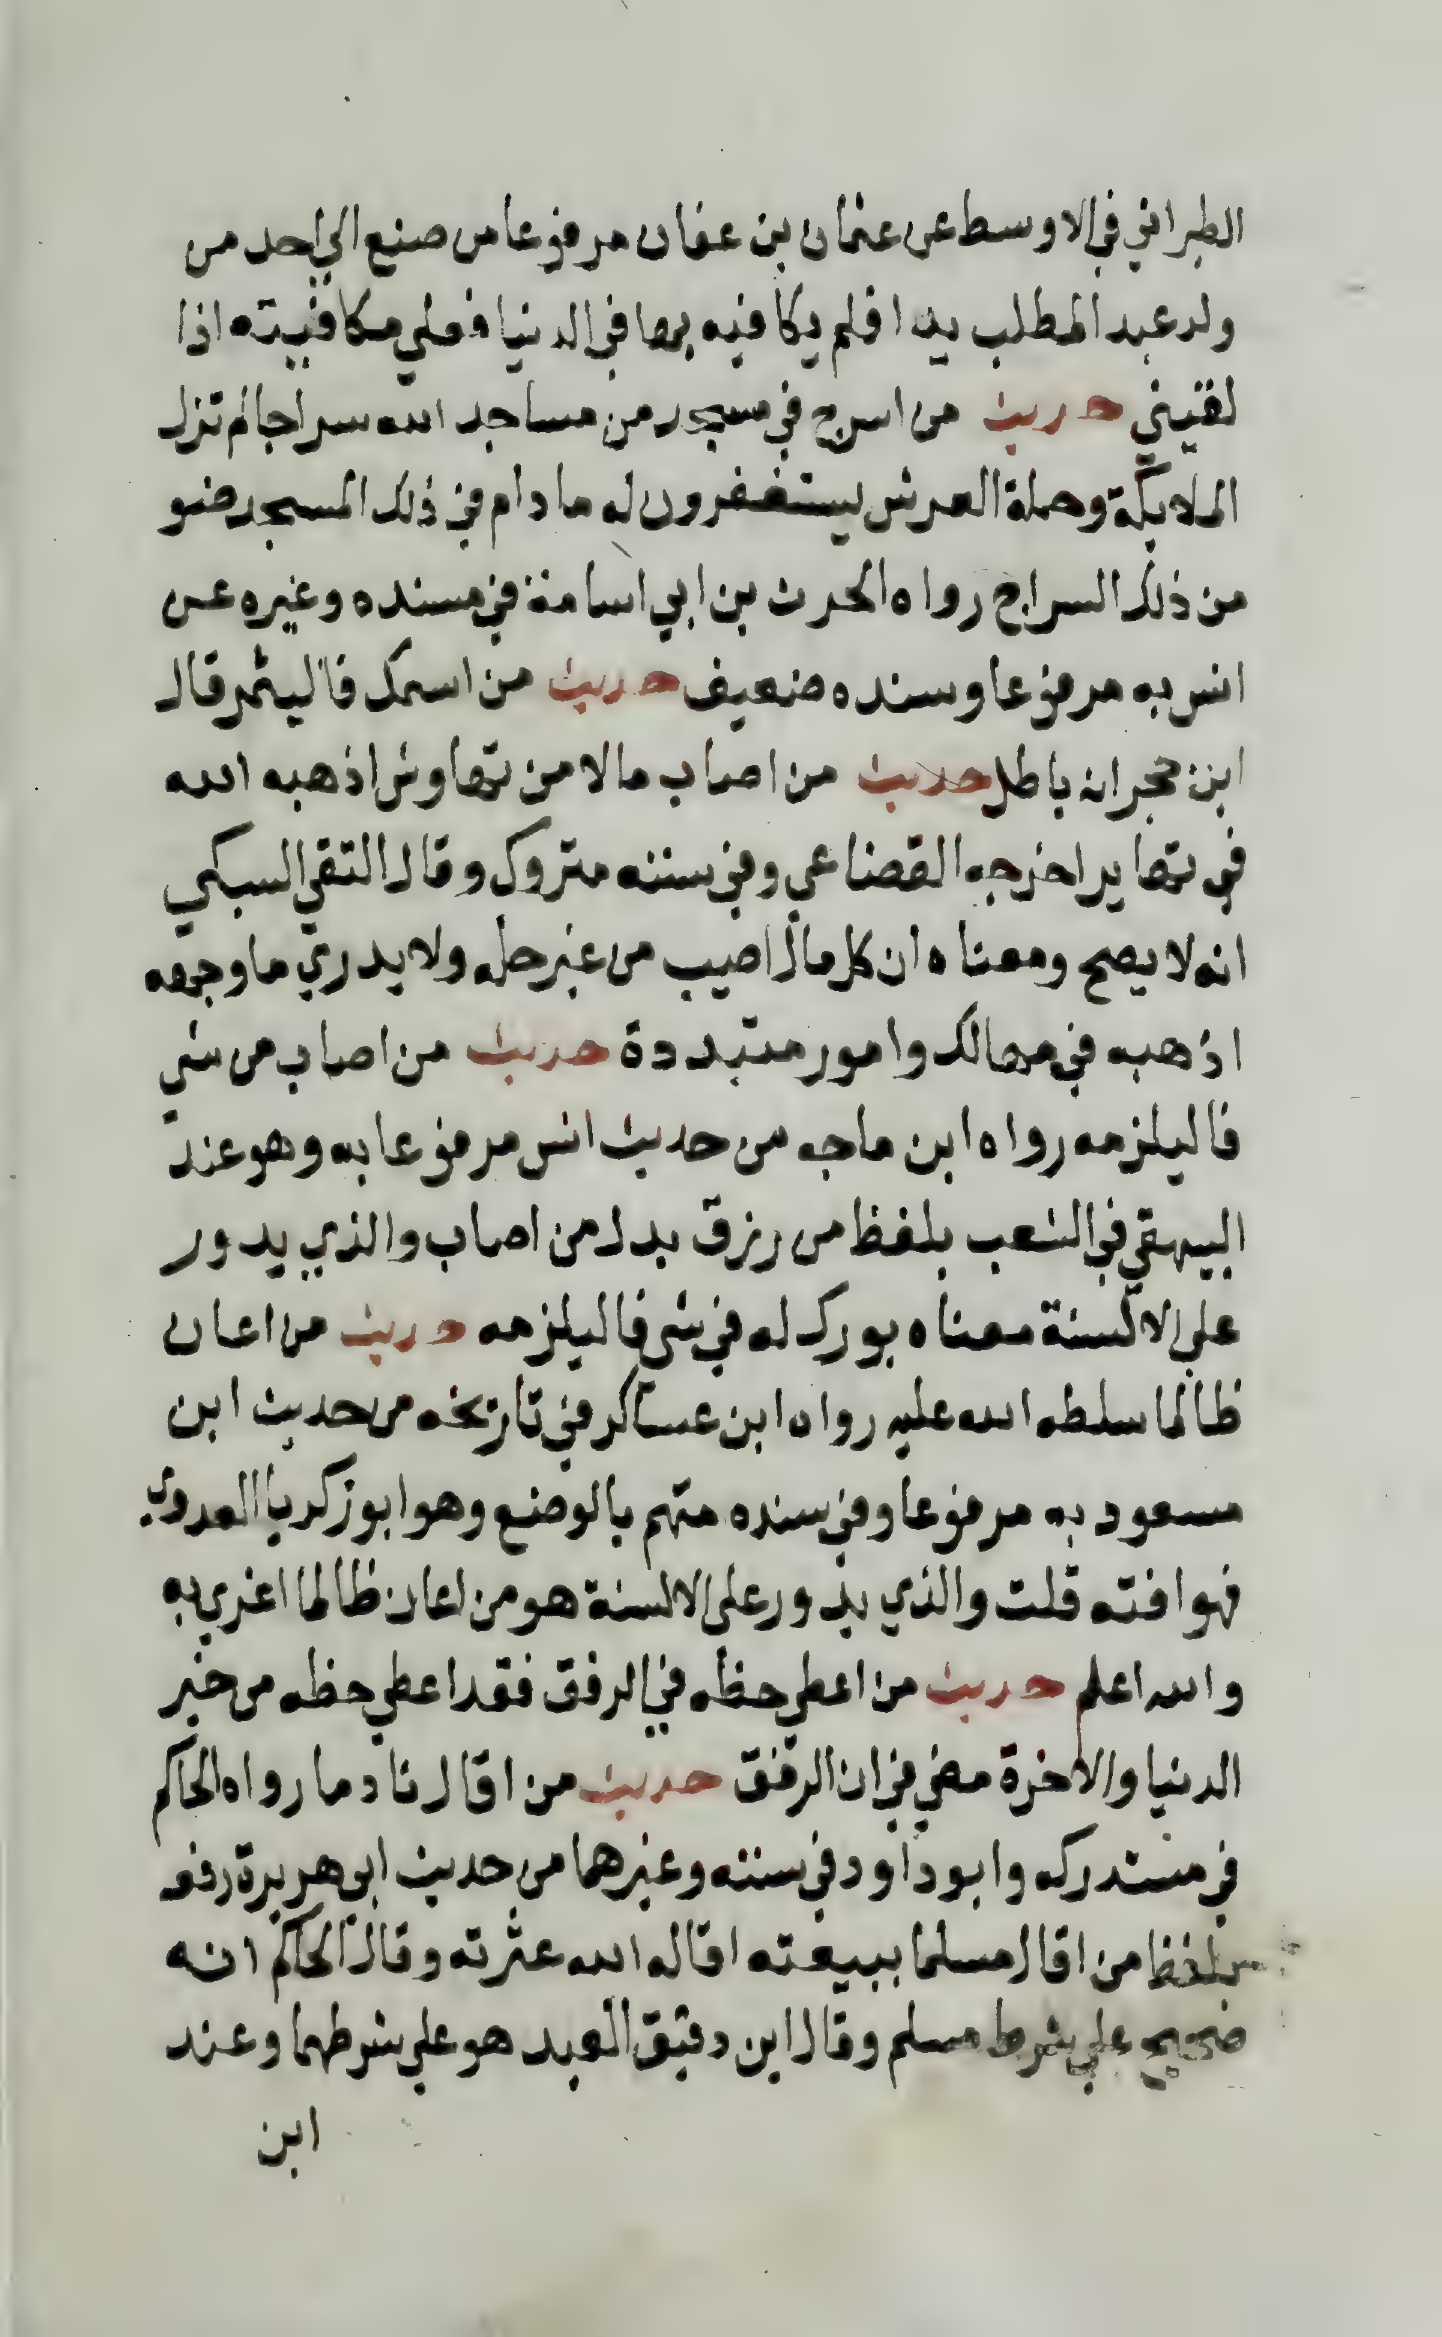 الطبراني في الاوسط عن عثمان بن عفان مرفوعا من صنع الي احد من
ولد عبد المطلب يدا فلم يكافيه بها في الدنيا فعلي مكافيته اذا
لقيني حديث من اسرج في مسجد من مساجد الله سراجا لم تزل
الملايكة وحملة العرش يستغفرون له ما دام في ذلك المسجد ضو
من ذلك السراج رواه الحرث بن ابي اسامة في مسنده وغيره عن
انس به مرفوعا وسنده ضعيف حديث من اسمك فاليثمر قال
ابن حجر انه باطل حديث من اصاب مالا من تهاوش اذهبه الله
في نهابر اخرجه القضاعي وفي سننه متروك وقال التقي السبكي
انه لا يصح ومعناه ان كل مال اصيب من غير حله ولا يدري ما وجهه
اذهبه في مهالك وامور متبددة حديث من اصاب من شي
فاليلزمه رواه ابن ماجه من حديث انس مرفوعا به وهو عند
البيهقي في الشعب بلفظ من رزق بدل من اصاب والذي يدور
علي الالسنة معناه بورك له في شي فاليلزمه حديث من اعان
ظالما سلطه الله عليه رواه ابن عساكر في تاريخه من حديث ابن
مسعود به مرفوعا وفي سنده متهم بالوضع وهو ابو زكريا العدوي
فهو افته قلت والذي يدور علي الالسنة هو من اعان ظالما اغري به
والله اعلم حديث من اعطي حظه في الرفق فقد اعطي حظه من خير
الدنيا والاخرة مضي في ان الرفق حديث من اقال نادما رواه الحاكم
في مستدركه وابو داود في سننه وغيرهما من حديث ابي هريرة رفعه
بلفظ من اقال مسلما ببيعته اقاله الله عثرته وقال الحاكم انه
صحيح علي شرط مسلم وقال ابن دقيق العيد هو علي شرطهما وعند
ابن